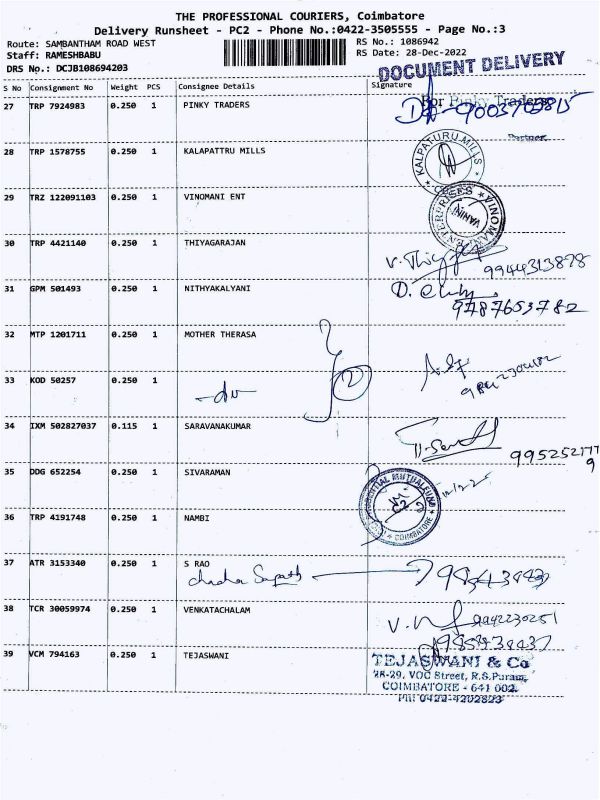 THE PROFESSIONAL COURIERS, Coimbatore
Delivery Runsheet - PC2 - Phone No.:0422-3505555 - Page No.:3
Route: SAMBANTHAM ROAD WEST
RS No.: 1086942
Staff: RAMESHBABU
RS Date: 28-Dec-2022
DRS No.: DCJB108694203
DOCUMENT DELIVERY
S No Consignment No Weight PCS Consignee Details Signature
For Pinky Traders
27 TRP 7924983 0.250 1 PINKY TRADERS
Partner
28 TRP 1578755 0.250 1 KALAPATTRU MILLS
KALPATURU MILLS
29 TRZ 122091103 0.250 1 VINOMANI ENT
ENTERPRISES VINOMANI
30 TRP 4421140 0.250 1 THIYAGARAJAN
9944313878
31 GPM 501493 0.250 1 NITHYAKALYANI
9787653782
32 MTP 1201711 0.250 1 MOTHER THERASA
33 KOD 50257 0.250 1
2
34 IXM 502827037 0.115 1 SARAVANAKUMAR
35 DDG 652254 0.250 1 SIVARAMAN
MUTUALFUND
COIMBATORE
36 TRP 4191748 0.250 1 NAMBI
37 ATR 3153340 0.250 1 S RAO
38 TCR 30059974 0.250 1 VENKATACHALAM
9942230251
39 VCM 794163 0.250 1 TEJASWANI
TEJASWANI & Co
28-29, VOC Street, R.S.Puram,
COIMBATORE - 641 002.
PH: 0422-4202823